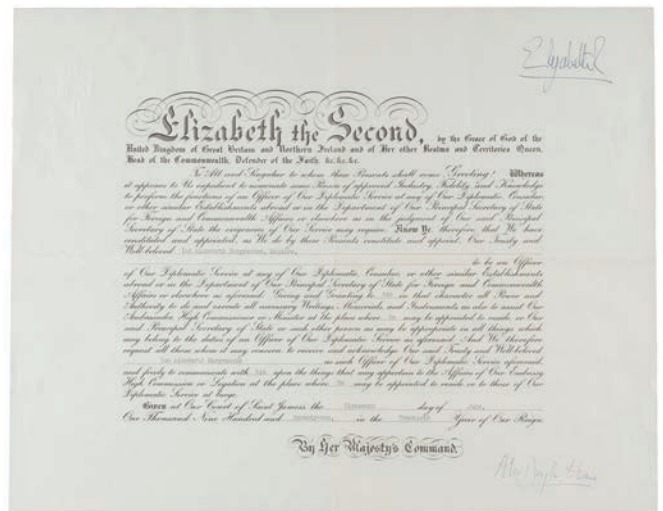 Elizabeth R
Elizabeth the Second, by the Grace of God of the
United Kingdom of Great Britain and Northern Ireland and of Her other Realms and Territories Queen,
Head of the Commonwealth, Defender of the Faith, &c. &c. &c.
To All and Singular to whom these Presents shall come, Greeting! Whereas
it appears to Us expedient to nominate some Person of approved Industry, Fidelity, and Knowledge
to perform the functions of an Officer of Our Diplomatic Service at any of Our Diplomatic, Consular,
or other similar Establishments abroad or in the Department of Our Principal Secretary of State
for Foreign and Commonwealth Affairs or elsewhere as in the judgment of Our said Principal
Secretary of State the exigencies of Our Service may require. Know Ye, therefore, that We have
constituted and appointed, as We do by these Presents constitute and appoint, Our Trusty and
Well-beloved
to be an Officer
of Our Diplomatic Service at any of Our Diplomatic, Consular, or other similar Establishments
abroad or in the Department of Our Principal Secretary of State for Foreign and Commonwealth
Affairs or elsewhere as aforesaid. Giving and Granting to him in that character all Power and
Authority to do and execute all necessary Writings, Memorials, and Instruments as also to assist Our
Ambassador High Commissioner or Minister at the place where he may be appointed to reside, or Our
said Principal Secretary of State or such other person as may be appropriate in all things which
may belong to the duties of an Officer of Our Diplomatic Service as aforesaid. And We therefore
request all those whom it may concern to receive and acknowledge Our said Trusty and Well-beloved
as such Officer of Our Diplomatic Service aforesaid,
and freely to communicate with him upon the things that may appertain to the Affairs of Our Embassy
High Commission or Legation at the place where he may be appointed to reside or to those of Our
Diplomatic Service at large.
Given at Our Court of Saint James's, the day of
One Thousand Nine Hundred and in the Year of Our Reign.
By Her Majesty's Command.